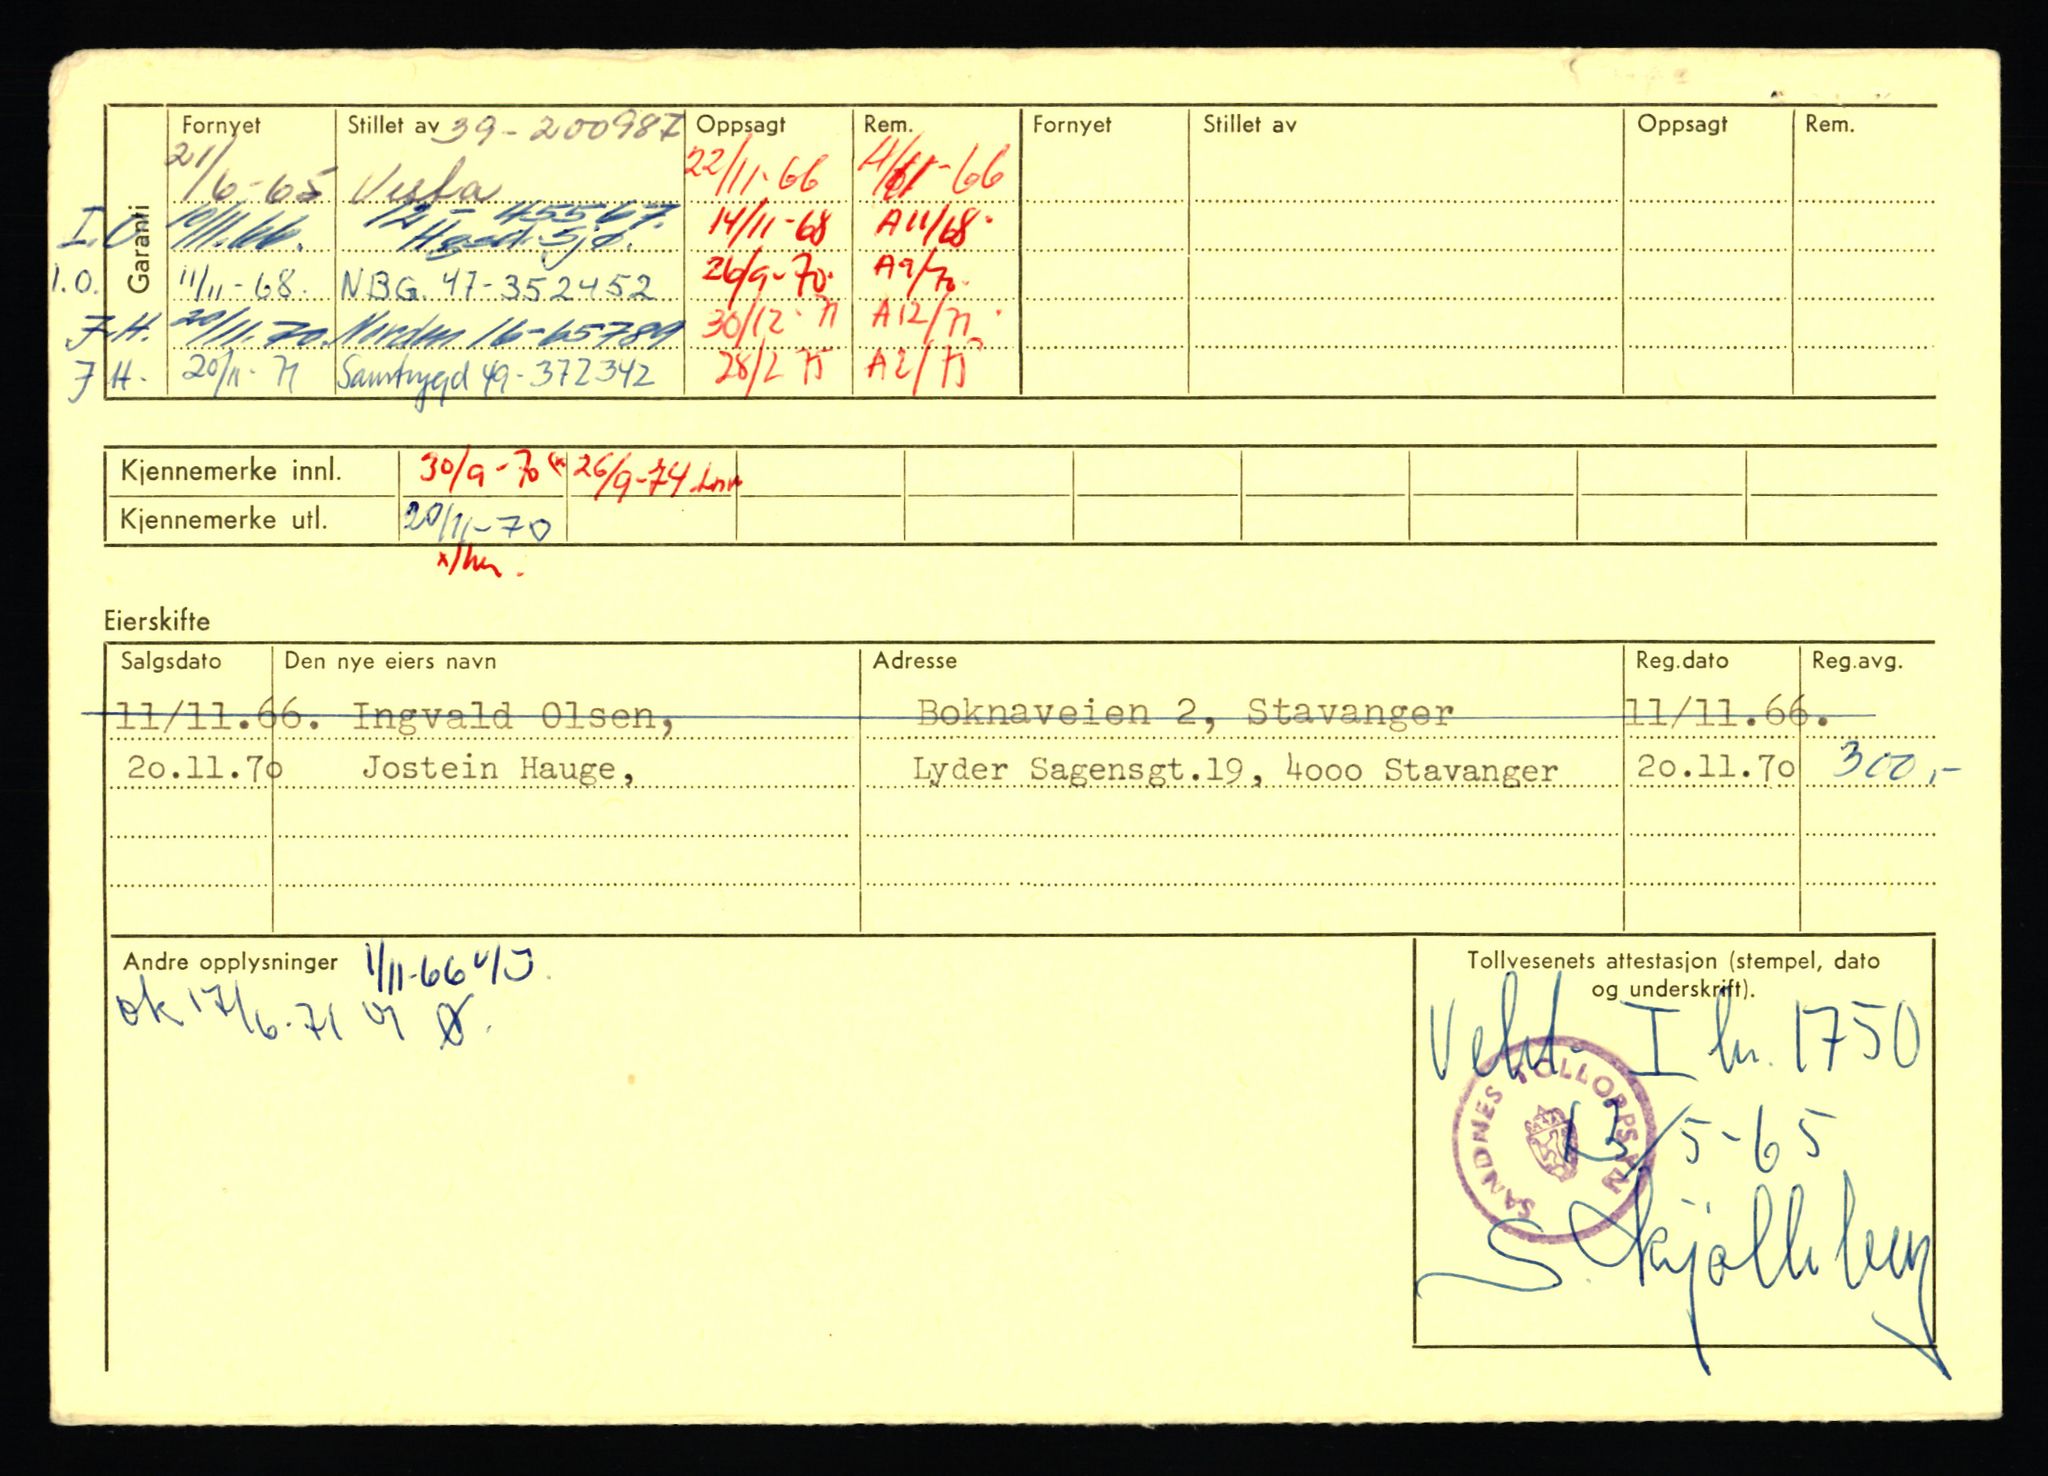 Garanti Fornyet Stillet av 39-200987 Oppsagt Rem. Fornyet Stillet av Oppsagt Rem.
21/6-65 Vesta 22/11-66 -66
I.O 10/11.66. 12-45567. 14/11-68 A11/68.
I.O. 11/11-68. NBG. 47-352452 26/9-70. A9/70.
J.H. 20/11.70. Norden 16-65789 30/12.71 A12/71.
J H. 20/11-71 Samtrygd 49-372342 28/2 75 A2/75
Kjennemerke innl. 30/9-70 26/9-74
Kjennemerke utl. 20/11-70
Eierskifte
Salgsdato Den nye eiers navn Adresse Reg.dato Reg.avg.
11/11.66. Ingvald Olsen, Boknaveien 2, Stavanger 11/11.66.
20.11.70 Jostein Hauge, Lyder Sagensgt.19, 4000 Stavanger 20.11.70 300,-
Andre opplysninger 1/11-66
ok 17/6-71
Tollvesenets attestasjon (stempel, dato
og underskrift).
I kr. 1750
SANDNES TOLLOPPSYN
13/5-65
S. Skjølleberg